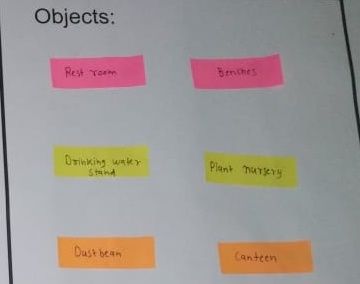 Objects:
Rest room
Benches
Drinking water
stand
Plant nursery
Dustbean
Canteen